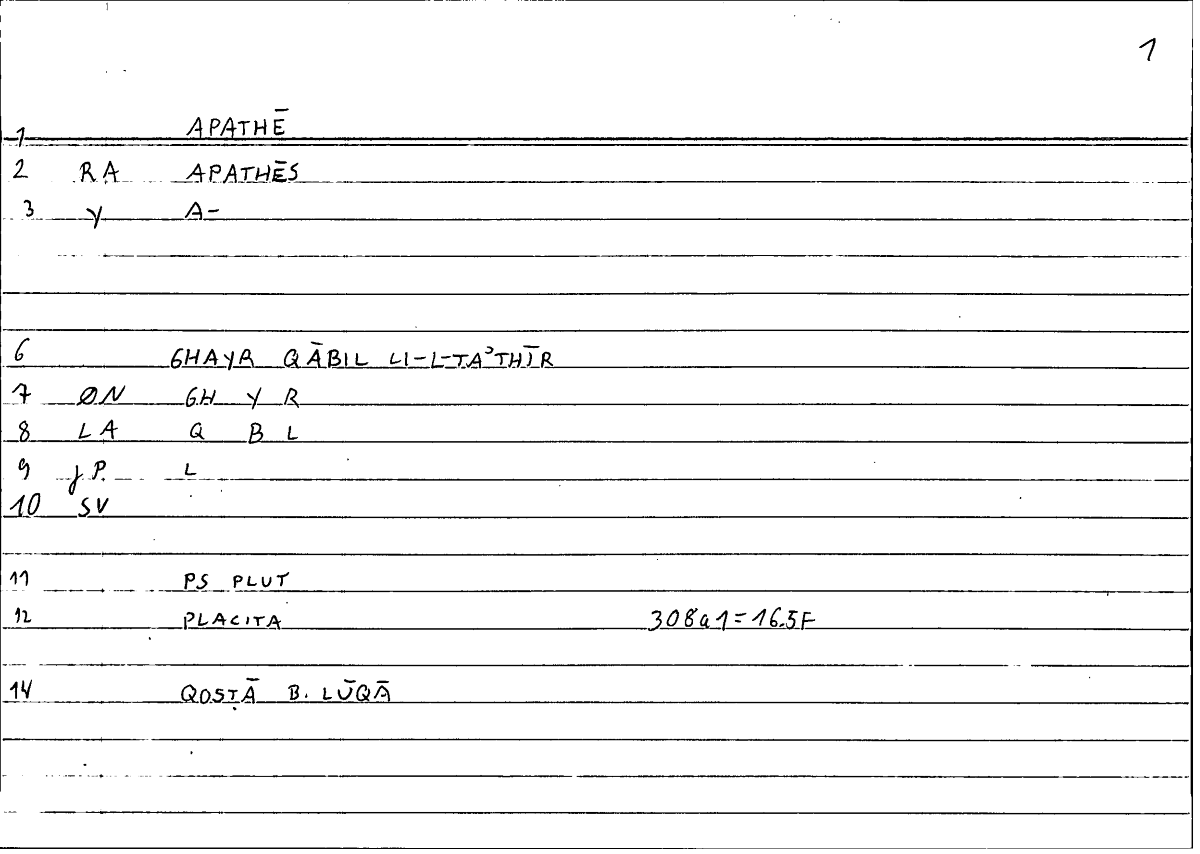 1
1 APATHĒ
2 RA APATHĒS
3 Y A-
6 GHAYR QĀBIL LI-L-TAʾTHĪR
7 ØN GH Y R
8 LA Q B L
9 JP. L
10 SV
11 PS PLUT
12 PLACITA 308a1=16.5F
14 QOSṬĀ B. LŪQĀ